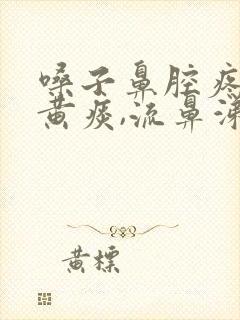 嗓子鼻腔疼
黄痰,流鼻涕
黄标